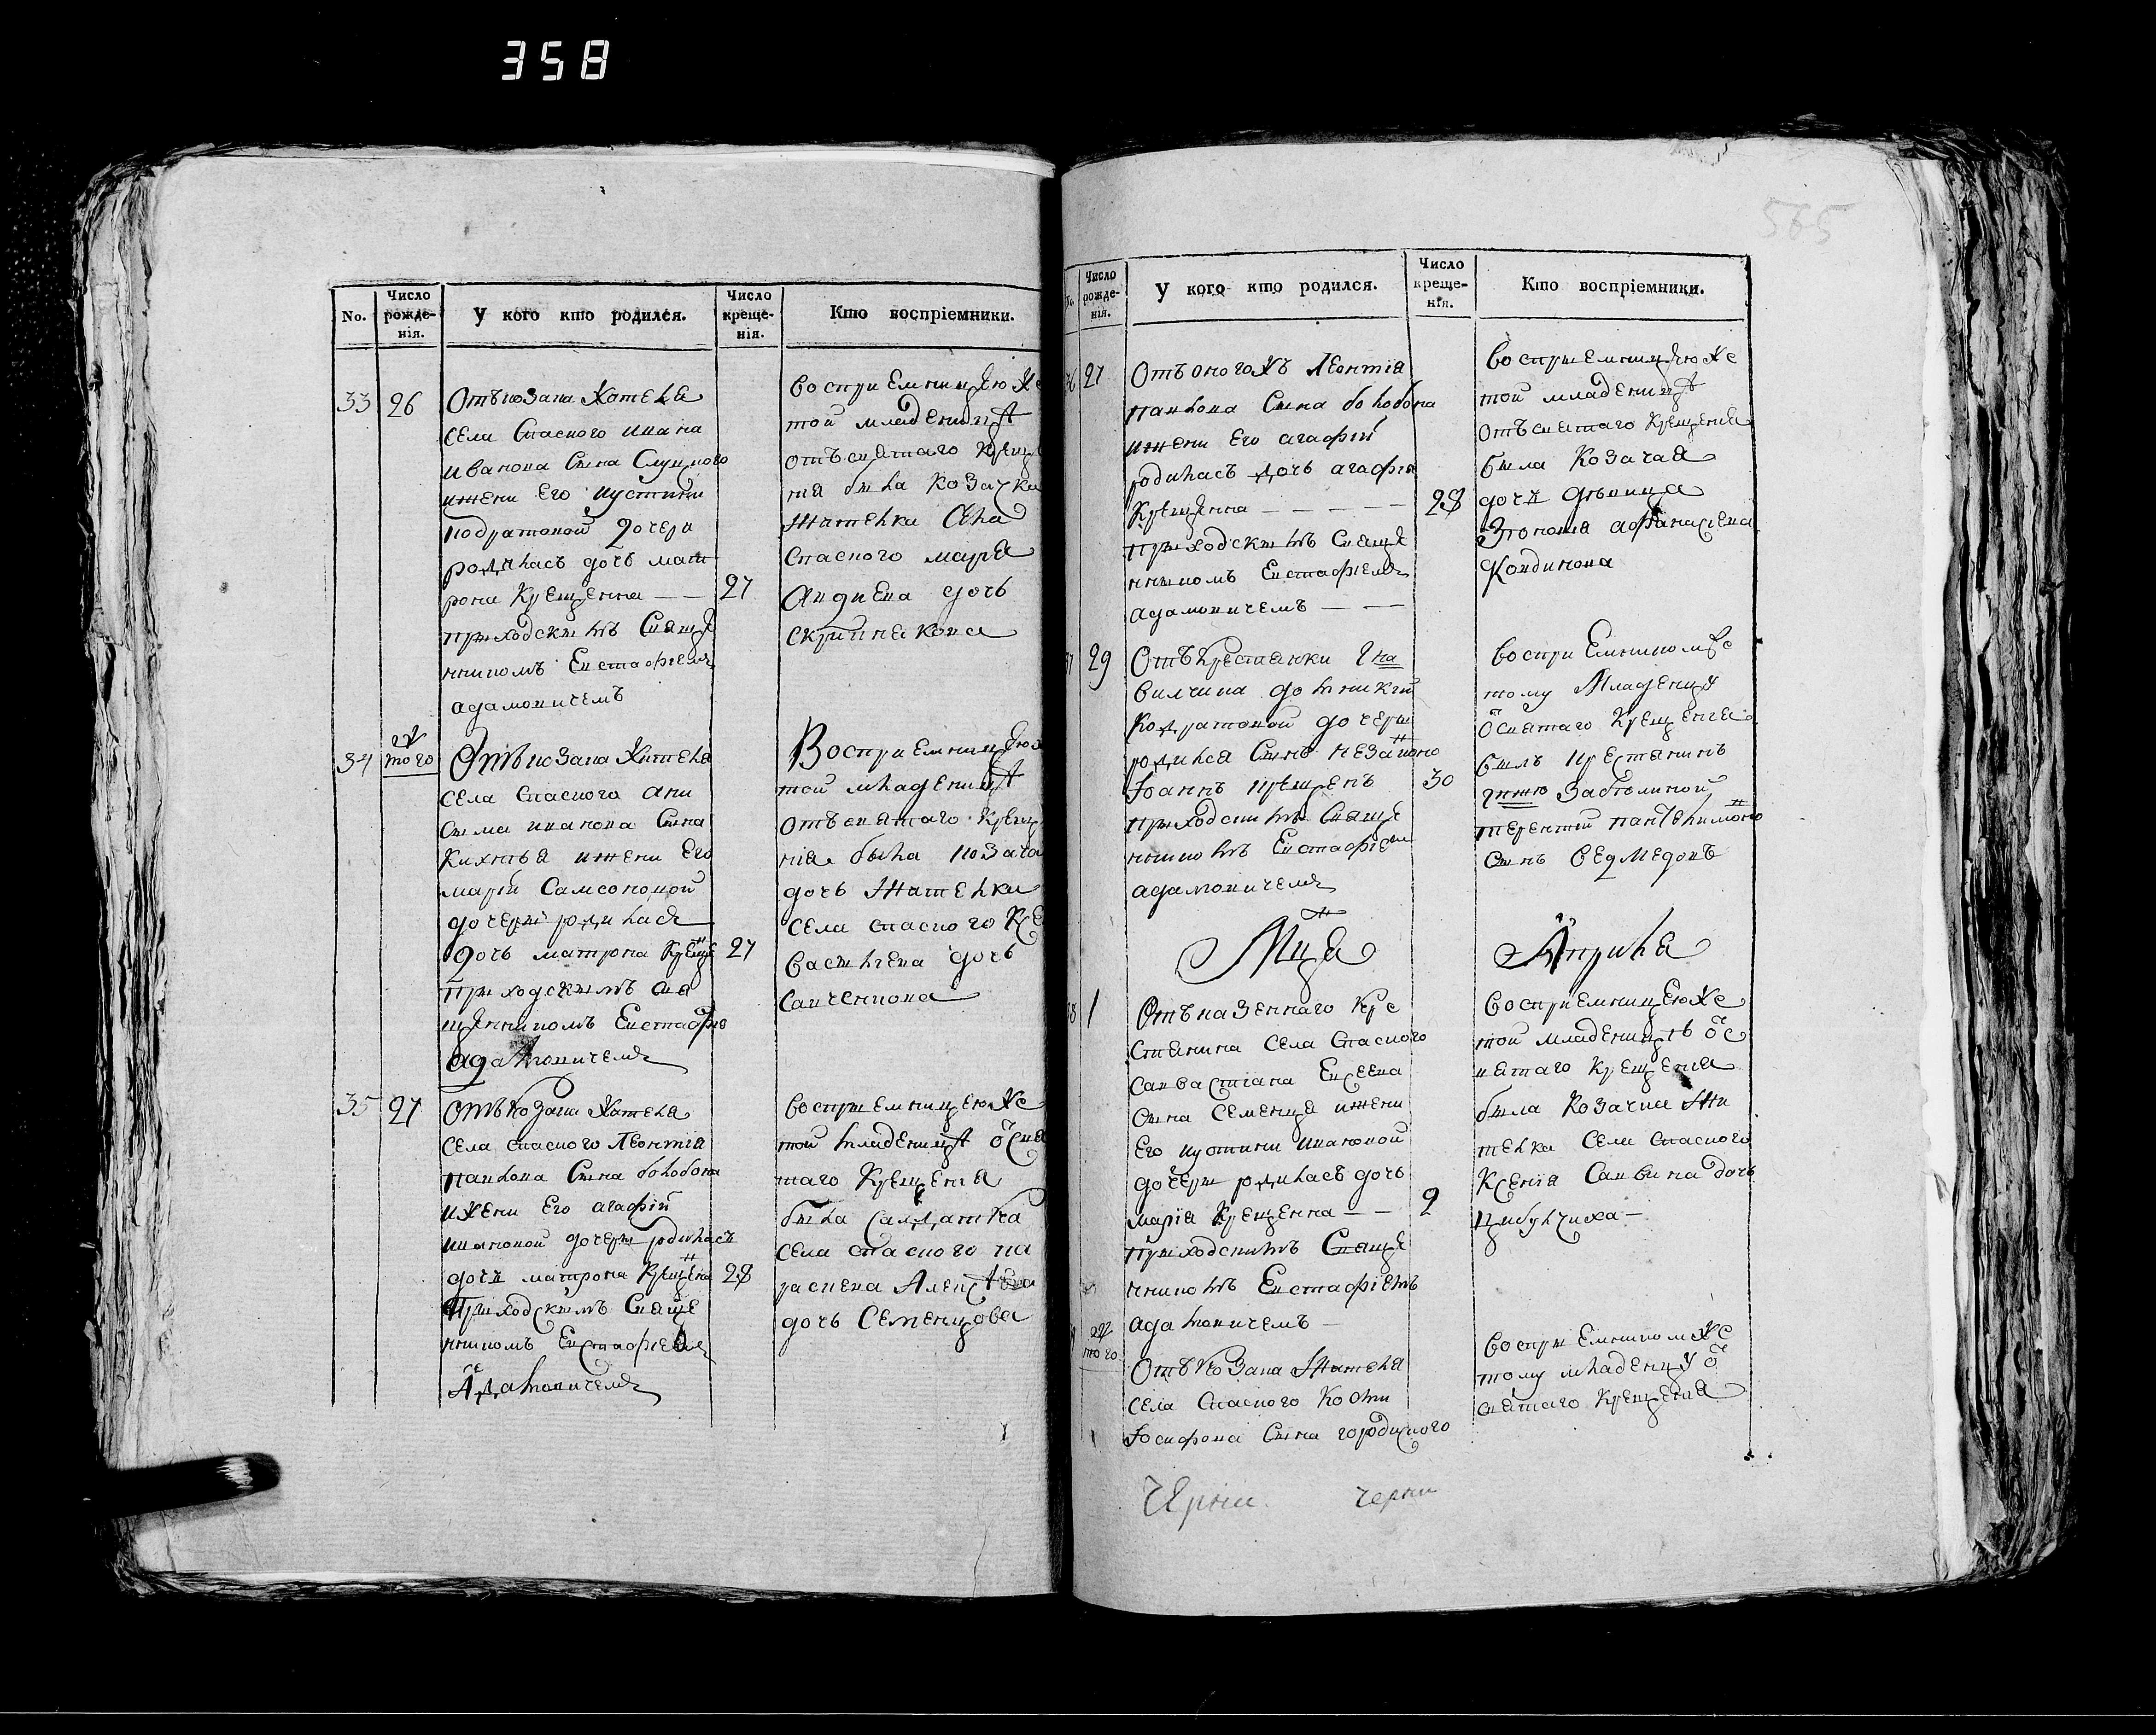 358
565
No.
Число рожде-нія.
У кого кто родился.
Число креще-нія.
Кто воспріемники.
33 26
Отъ козака Жителя
села Спаского ивана
иванова Сына
ижени Его иустини
кодратовой дочери
родилась дочь мат
рона Крещенна — — 27
приходскимъ Свяще
нникомъ Евстафіемъ
адамовичемъ
Воспри Емницею же
той младеницѣ
отъ святаго Креще
нія была Козачка
Жителка села
Спаского марія
дочь
34 того
Отъ козака Жителя
села Спаского ани
сима иванова Сына
ижени Его
маріи Самсоновой
дочери родилася
дочь матрона Креще 27
приходскимъ свя
щенникомъ Евстафіе
адамовичемъ
Воспри Емницею ж
той младеницѣ
отъ святаго Крещ
нія была козача
дочь Жителки
села спаского
василіева дочь
35 27
Отъ козака Жителя
села спаского Леонтія
павлова Сына боловона
ижени Его агафіи
ивановой дочери родилась
дочь матрона Крещена 28
Приходскимъ Свяще
нникомъ Евстафіемъ
Адамовичемъ
воспри Емницею же
той младеницѣ ѿ свя
таго Крещенія
была Салдатка
села спаского па
раскева
дочь Семенцова
No.
Число рожде-нія.
У кого кто родился.
Число креще-нія.
Кто воспріемники.
36 27
Отъ оногожъ Леонтія
павлова Сына боловона
ижени Его агафіи
родилась дочь агафія
Крещенна — — — — — 28
приходскимъ Свяще
нникомъ Евстафіемъ
адамовичемъ — — —
воспри Емницею же
той младеницѣ
отъ святаго Крещенія
была Козачая
дочь дѣвица
афанасіева
Кондикова
37 29
Отъ Крестянки
дочери
родился Сынъ незакон
Іоаннъ крещенъ 30
приходскимъ Свяще
нникомъ Евстафіем
адамовичемъ
воспри Емникомже
тому Младенцу
ѿ святаго Крещенія
былъ крестянинъ
терентій
сынъ
Мца Априля
38 1
Отъ казенного Кре
стянина Села Спаского
Сына Семенця ижени
Его иустини ивановой
дочери родилась дочь
марія Крещенна — — 2
приходскимъ Свяще
нникомъ Евстафіемъ
адамовичемъ —
воспри Емницею же
той младеницѣ ѿ с
вятаго Крещенія
была Козачка Жи
телка Села Спаского
Ксенія Саввина дочь
того
Отъ Козака Жителя
села Спаского
Іосифова Сына
воспри Емникомже
тому младенцу ѿ
святаго Крещенія
черни черни